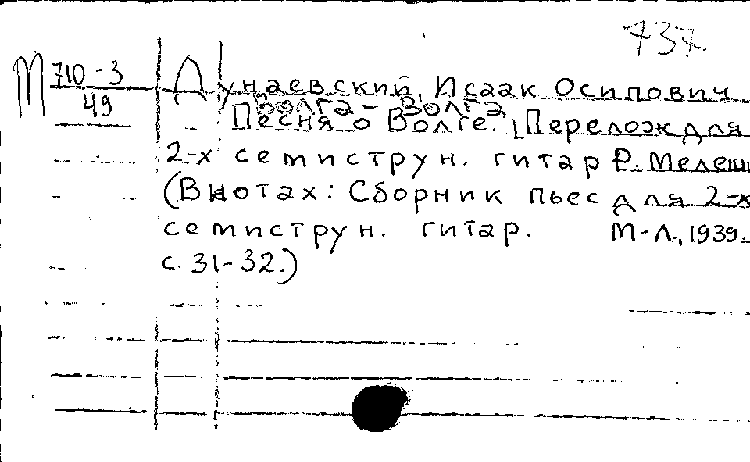 737
М 710-3
49
Дунаевский, Исаак Осипович
Волга-Волга
Песня о Волге. [Перелож для
2-х семиструн. гитар Р. Мелеш
(В нотах: Сборник пьес для 2-х
семиструн. гитар. М-Л., 1939.
с. 31-32.)